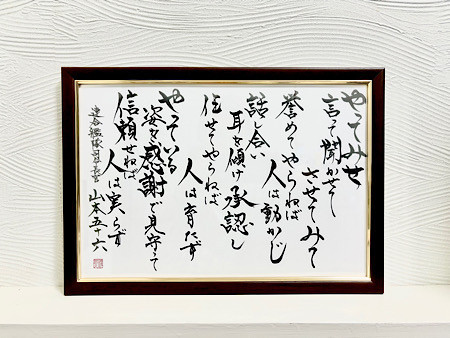 やってみせ
言って聞かせて
させてみて
誉めてやらねば
人は動かじ
話し合い
耳を傾け承認し
任せてやらねば
人は育たず
やっている
姿を感謝で見守って
信頼せねば
人は実らず
連合艦隊司令長官 山本五十六